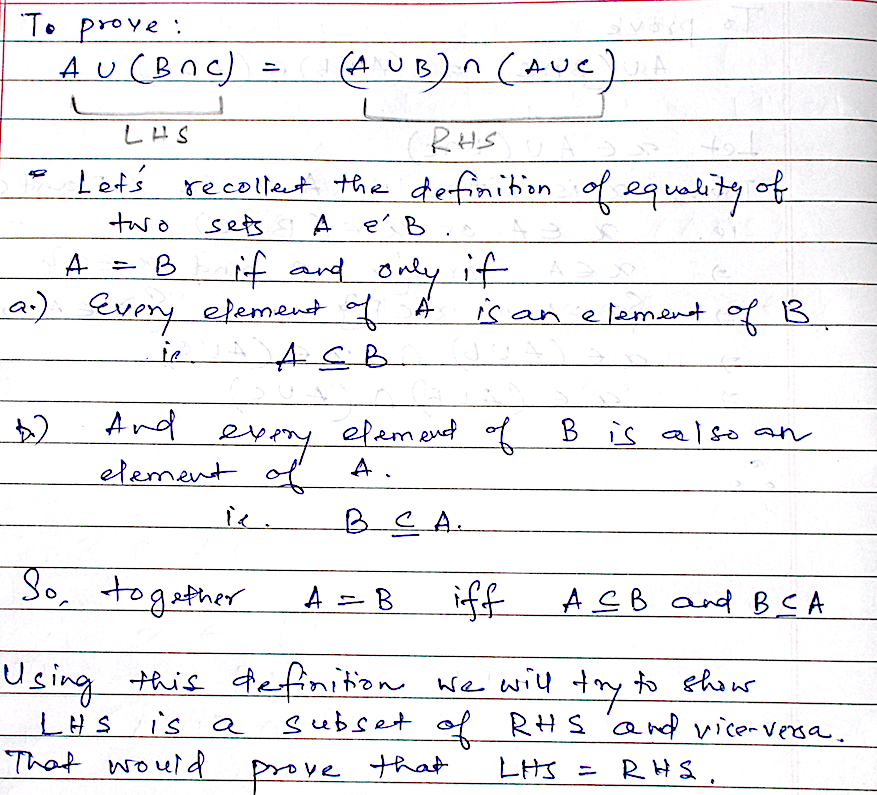 To prove :
A ∪ (B ∩ C) = (A ∪ B) ∩ (A ∪ C)
LHS RHS
Let's recollect the definition of equality of
two sets A & B .
A = B if and only if
a.) Every element of A is an element of B .
ie. A ⊆ B .
b.) And every element of B is also an
element of A .
ie. B ⊆ A.
So, together A = B iff A ⊆ B and B ⊆ A
Using this definition we will try to show
LHS is a subset of RHS and vice-versa.
That would prove that LHS = RHS.